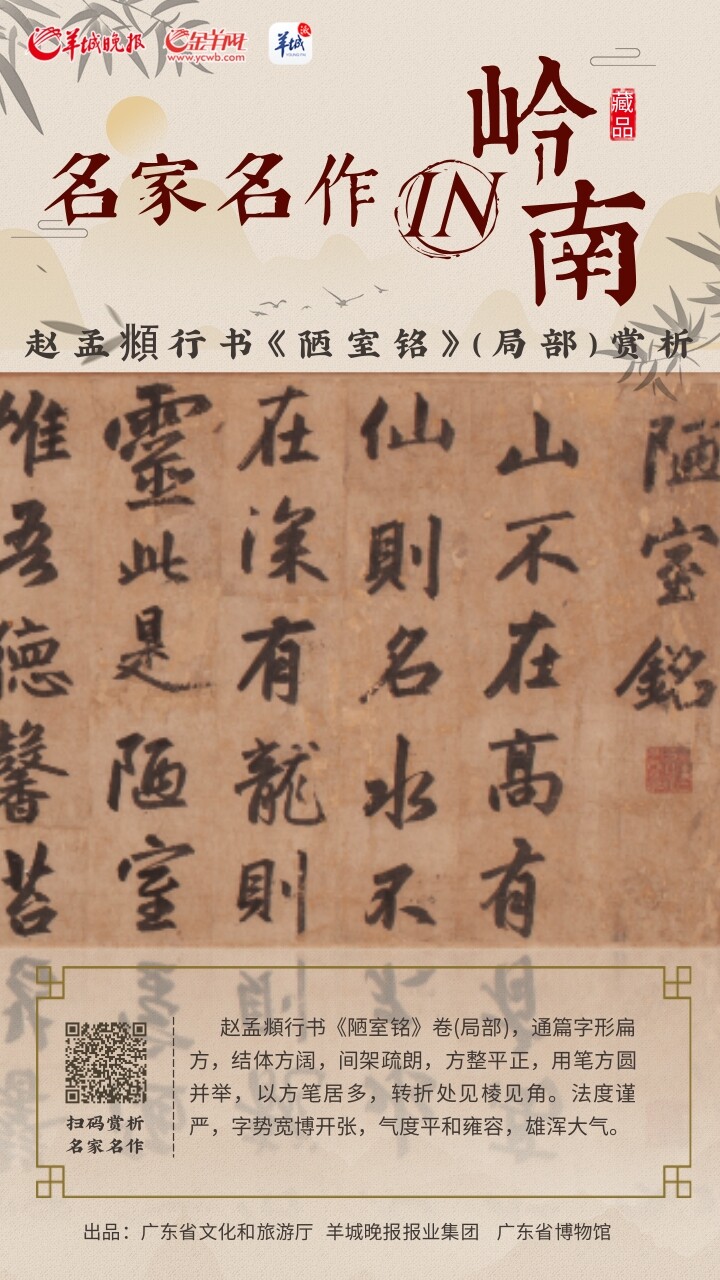 羊城晚报
金羊网
www.ycwb.com
羊城派
名家名作
IN
岭南
藏品
赵孟頫行书《陋室铭》(局部)赏析
陋室銘
山不在高有
仙則名水不
在深有龍則
靈此是陋室
惟吾德馨苔
赵孟頫行书《陋室铭》卷(局部)，通篇字形扁
方，结体方阔，间架疏朗，方整平正，用笔方圆
并举，以方笔居多，转折处见棱见角。法度谨
严，字势宽博开张，气度平和雍容，雄浑大气。
扫码赏析
名家名作
出品：广东省文化和旅游厅 羊城晚报报业集团 广东省博物馆